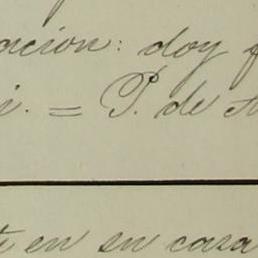 ación: doy f
i. = P. de A
te en su casa